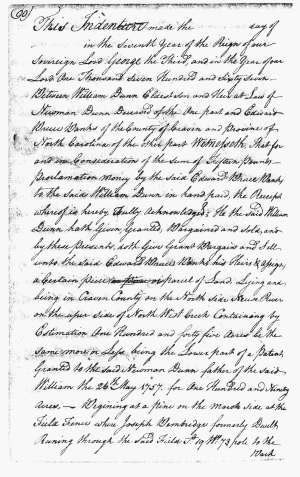 90
This Indenture made the day of
in the Seventh Year of the Reign of our
Sovereign Lord George the Third, and in the Year of our
Lord One Thousand Seven Hundred and Sixty Seven
Between William Dunn Eldest Son and Heir at Law of
Newman Dunn Deceased of the One part and Edward
Bruce Banks of the County of Craven and Province of
North Carolina of the other part Witnesseth, That for
and in Consideration of the Sum of Fifteen Pounds
Proclamation money by the Said Edward Bruce Banks
to the Said William Dunn in hand paid, the Receipt
whereof is hereby fully Acknowledged; He the Said William
Dunn hath Given, Granted, Bargained and Sold, and
by these presents, doth Give Grant Bargain and Sell
unto the Said Edward Bruce Banks his Heirs & assigns,
a Certain piece or parcel of Land. Lying and
being in Craven County on the North Side Neuse River
on the uper Side of North West Creek Containing by
Estimation One Hundred and forty five Acres be the
Same more or Less, being the Lower part of a Patent,
Granted to the Said Newman Dunn father of the Said
William the 26th May 1757. for One Hundred and Ninety
Acres, — Begining at a pine on the Marsh Side at the
Field Fence where Joseph Dwelt,
Runing through the Said Field 73 pole to the